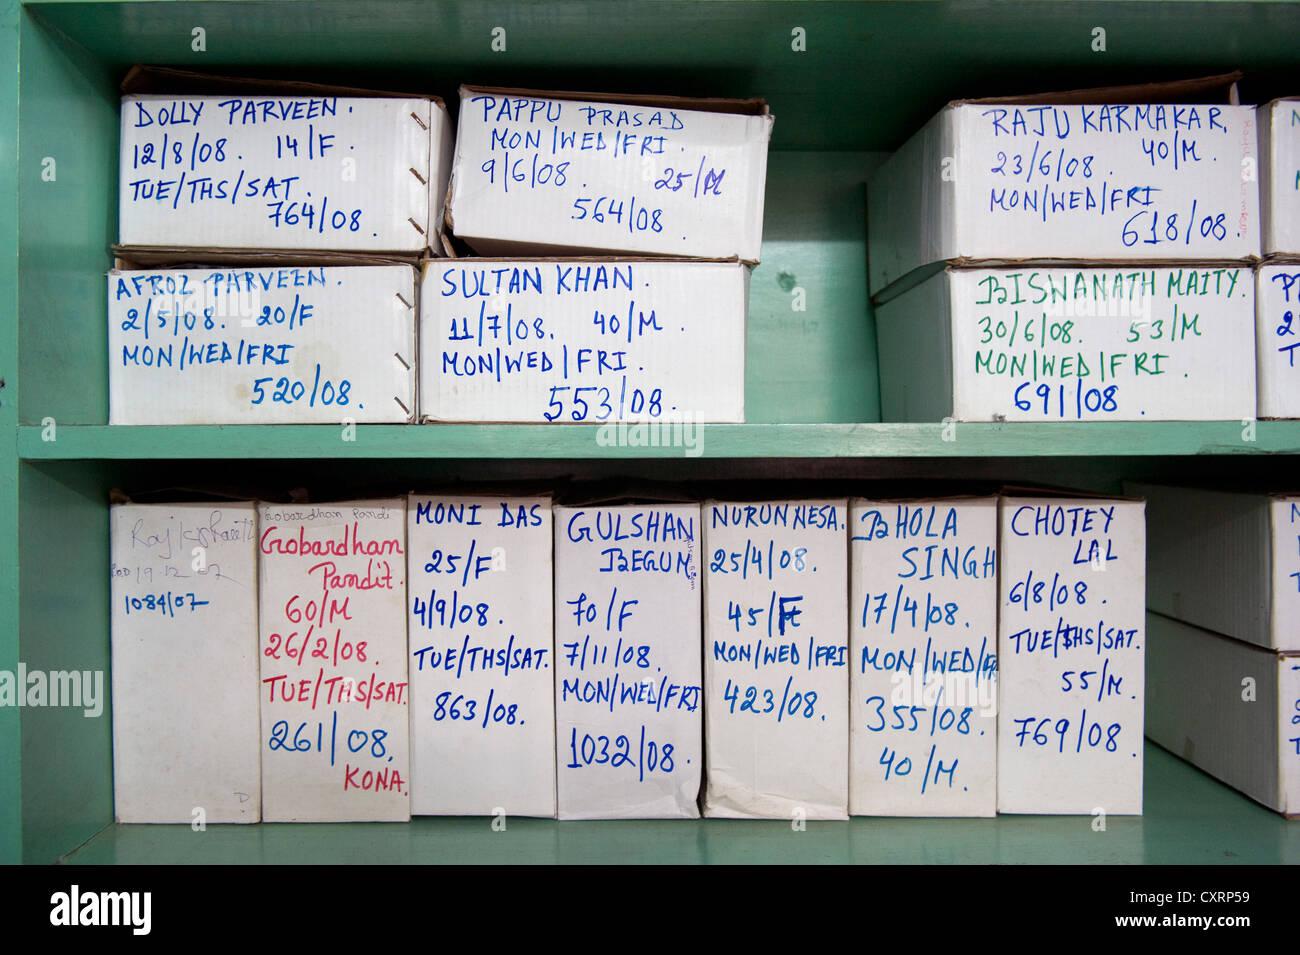 DOLLY PARVEEN.
12/8/08. 14/F.
TUE/THS/SAT.
764/08.
PAPPU PRASAD
MON/WED/FRI.
9/6/08.
25/M
564/08.
RAJU KARMAKAR.
23/6/08. 40/M.
MON/WED/FRI
618/08.
AFROZ PARVEEN.
2/5/08. 20/F
MON/WED/FRI
520/08.
SULTAN KHAN.
11/7/08. 40/M.
MON/WED/FRI.
553/08.
BISWANATH MAITY.
30/6/08. 53/M
MON/WED/FRI.
691/08
19-12-07
1084/07
D
Gobardhan Pandi
Gobardhan
Pandit.
60/M
26/2/08.
TUE/THS/SAT.
261/08.
KONA.
MONI DAS
25/F
4/9/08.
TUE/THS/SAT.
863/08.
GULSHAN
BEGUM
70/F
7/11/08.
MON/WED/FRI
1032/08.
NURUN NESA.
25/4/08.
45/F
MON/WED/FRI
423/08.
BHOLA
SINGH
17/4/08.
MON/WED/FRI
355/08.
40/M.
CHOTEY
LAL
6/8/08.
TUE/THS/SAT.
55/M.
769/08.
alamy
Image ID: CXRP59
www.alamy.com